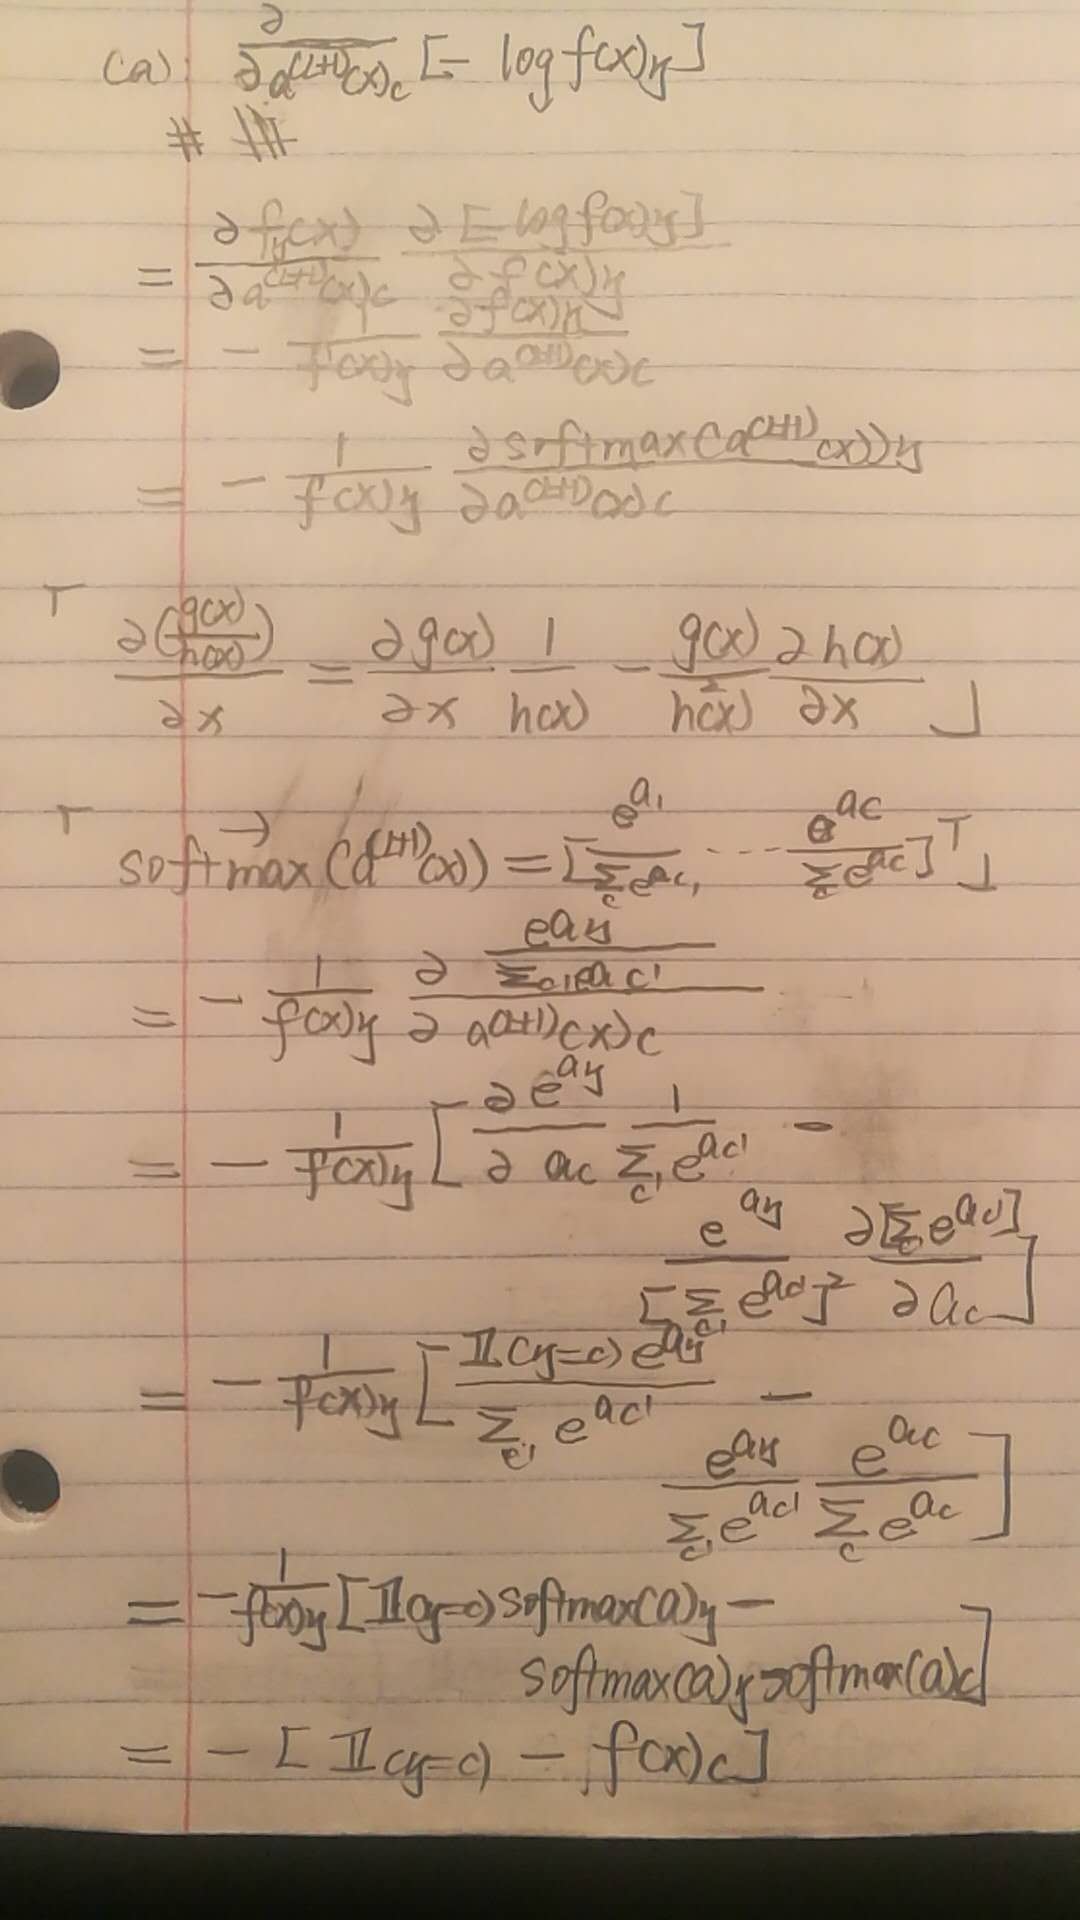 (a) ∂/∂a^(L+1)(x)_c [- log f(x)_y]
= ∂f_y(x)/∂a^(L+1)(x)_c ∂[-log f(x)_y]/∂f(x)_y
= - 1/f(x)_y ∂f(x)_y/∂a^(L+1)(x)_c
= - 1/f(x)_y ∂softmax(a^(L+1)(x))_y/∂a^(L+1)(x)_c
┌ ∂(g(x)/h(x))/∂x = ∂g(x)/∂x 1/h(x) - g(x)/h²(x) ∂h(x)/∂x ┘
┌ softmax(a^(L+1)(x)) = [e^a_1/Σ_c' e^a_c' ... e^a_c/Σ_c' e^a_c']^T ┘
= - 1/f(x)_y ∂ (e^a_y/Σ_c' e^a_c')/∂a^(L+1)(x)_c
= - 1/f(x)_y [∂e^a_y/∂a_c 1/Σ_c' e^a_c' -
e^a_y/[Σ_c' e^a_c']² ∂[Σ_c' e^a_c']/∂a_c]
= - 1/f(x)_y [𝟙(y=c) e^a_y/Σ_c' e^a_c' -
e^a_y/Σ_c' e^a_c' e^a_c/Σ_c e^a_c]
= - 1/f(x)_y [𝟙(y=c) softmax(a)_y -
softmax(a)_y softmax(a)_c]
= - [𝟙(y=c) - f(x)_c]